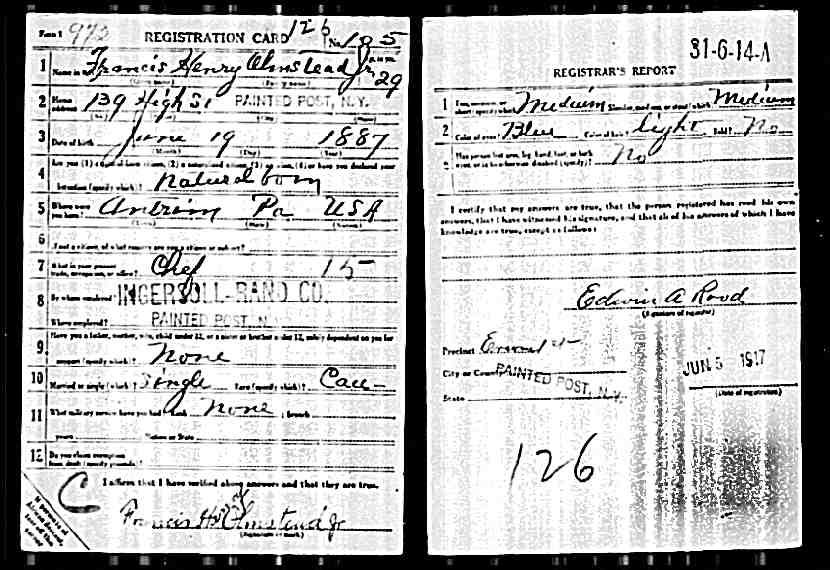 Form 1 973 REGISTRATION CARD 126 No. 185
1 Name in full Francis Henry Olmstead Jr. 29
(Given name) (Family name)
2 Home address 139 High St PAINTED POST, N.Y.
(No.) (Street) (City) (State)
3 Date of birth June 19 1887
(Month) (Day) (Year)
Are you (1) a natural-born citizen, (2) a naturalized citizen, (3) an alien, (4) or have you declared your
4 intention (specify which)? natural born
5 Where were you born? Antrim Pa USA
(Town) (State) (Nation)
6 If not a citizen, of what country are you a citizen or subject?
7 What is your present trade, occupation, or office? Chef 15
8 By whom employed? INGERSOLL-RAND CO.
Where employed? PAINTED POST, N.Y.
Have you a father, mother, wife, child under 12, or a sister or brother under 12, solely dependent on you for
9 support (specify which)? None
10 Married or single (which)? Single Race (specify which)? Cau
11 What military service have you had? Rank None ; branch
years Nation or State
12 Do you claim exemption from draft (specify grounds)?
I affirm that I have verified above answers and that they are true.
C
Francis H. Olmstead Jr
(Signature or mark)
If person is of African descent, tear off this corner
31-6-14-A
REGISTRAR'S REPORT
1 Tall, medium, or short (specify which)? Medium Slender, medium, or stout (which)? Medium
2 Color of eyes? Blue Color of hair? light Bald? No
3 Has person lost arm, leg, hand, foot, or both eyes, or is he otherwise disabled (specify)? No
I certify that my answers are true, that the person registered has read his own
answers, that I have witnessed his signature, and that all of his answers of which I have
knowledge are true, except as follows:
Edwin A Rood
(Signature of registrar)
Precinct Erwin
City or County PAINTED POST, N.Y.
State
JUN 5 1917
(Date of registration)
126